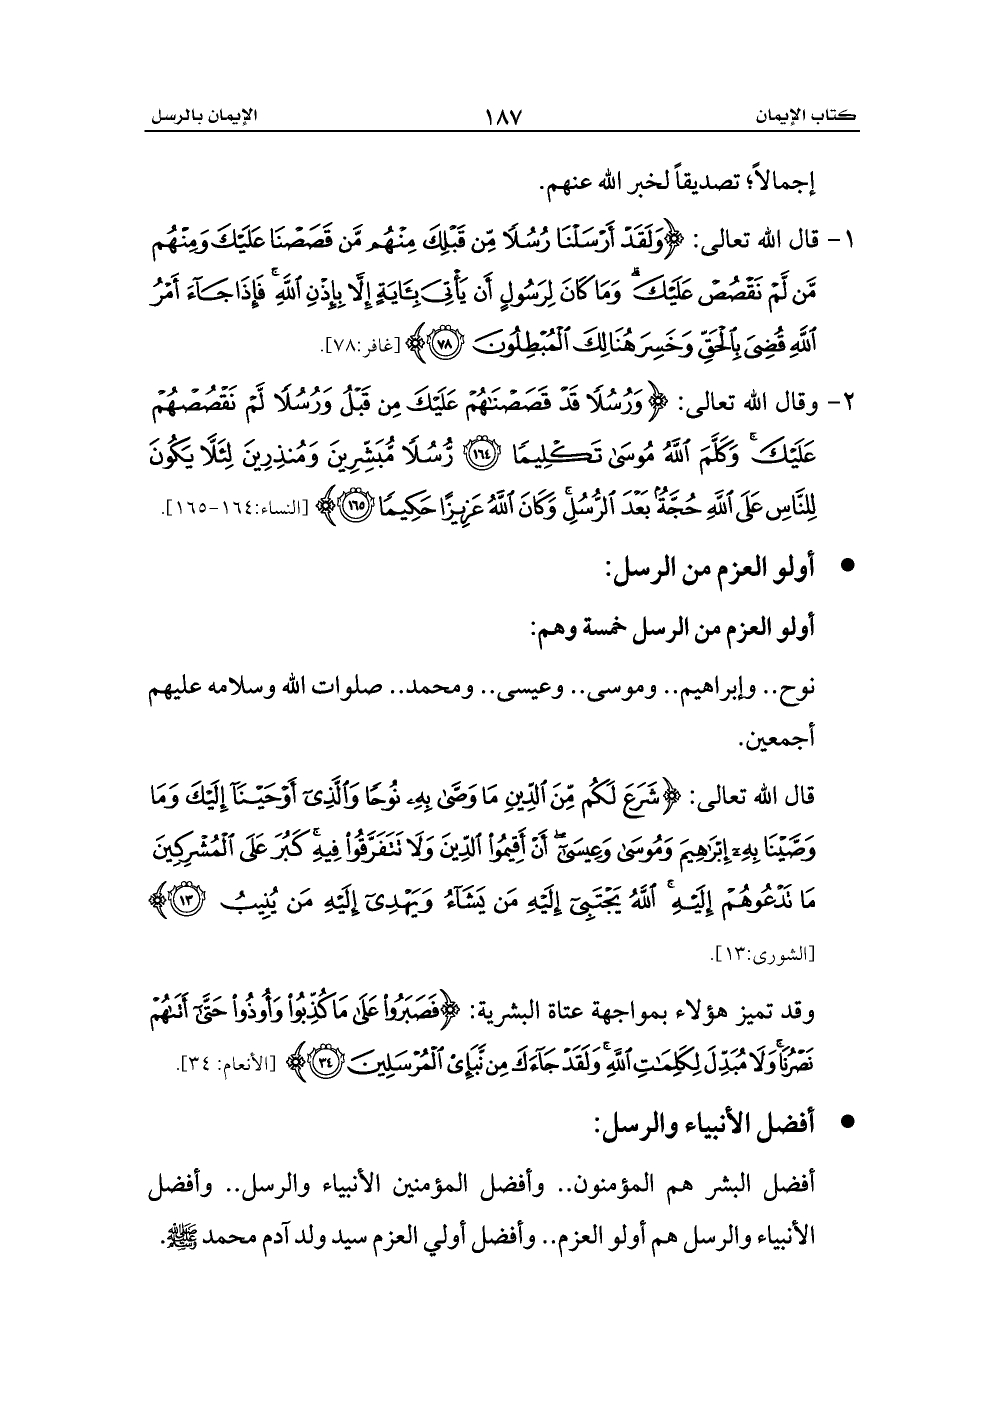 كتاب الإيمان ١٨٧ الإيمان بالرسل
إجمالاً؛ تصديقاً لخبر الله عنهم.
١- قال الله تعالى: ﴿وَلَقَدْ أَرْسَلْنَا رُسُلًا مِّن قَبْلِكَ مِنْهُم مَّن قَصَصْنَا عَلَيْكَ وَمِنْهُم
مَّن لَّمْ نَقْصُصْ عَلَيْكَ ۗ وَمَا كَانَ لِرَسُولٍ أَن يَأْتِىَ بِـَٔايَةٍ إِلَّا بِإِذْنِ ٱللَّهِ ۚ فَإِذَا جَآءَ أَمْرُ
ٱللَّهِ قُضِىَ بِٱلْحَقِّ وَخَسِرَ هُنَالِكَ ٱلْمُبْطِلُونَ ٧٨﴾ [غافر:٧٨].
٢- وقال الله تعالى: ﴿وَرُسُلًا قَدْ قَصَصْنَٰهُمْ عَلَيْكَ مِن قَبْلُ وَرُسُلًا لَّمْ نَقْصُصْهُمْ
عَلَيْكَ ۚ وَكَلَّمَ ٱللَّهُ مُوسَىٰ تَكْلِيمًا ١٦٤ رُّسُلًا مُّبَشِّرِينَ وَمُنذِرِينَ لِئَلَّا يَكُونَ
لِلنَّاسِ عَلَى ٱللَّهِ حُجَّةٌۢ بَعْدَ ٱلرُّسُلِ ۚ وَكَانَ ٱللَّهُ عَزِيزًا حَكِيمًا ١٦٥﴾ [النساء:١٦٤-١٦٥].
● أولو العزم من الرسل:
أولو العزم من الرسل خمسة وهم:
نوح.. وإبراهيم.. وموسى.. وعيسى.. ومحمد.. صلوات الله وسلامه عليهم
أجمعين.
قال الله تعالى: ﴿شَرَعَ لَكُم مِّنَ ٱلدِّينِ مَا وَصَّىٰ بِهِۦ نُوحًا وَٱلَّذِىٓ أَوْحَيْنَآ إِلَيْكَ وَمَا
وَصَّيْنَا بِهِۦٓ إِبْرَٰهِيمَ وَمُوسَىٰ وَعِيسَىٰٓ ۖ أَنْ أَقِيمُوا۟ ٱلدِّينَ وَلَا تَتَفَرَّقُوا۟ فِيهِ ۚ كَبُرَ عَلَى ٱلْمُشْرِكِينَ
مَا تَدْعُوهُمْ إِلَيْهِ ۚ ٱللَّهُ يَجْتَبِىٓ إِلَيْهِ مَن يَشَآءُ وَيَهْدِىٓ إِلَيْهِ مَن يُنِيبُ ١٣﴾
[الشورى:١٣].
وقد تميز هؤلاء بمواجهة عتاة البشرية: ﴿فَصَبَرُوا۟ عَلَىٰ مَا كُذِّبُوا۟ وَأُوذُوا۟ حَتَّىٰٓ أَتَىٰهُمْ
نَصْرُنَا ۚ وَلَا مُبَدِّلَ لِكَلِمَٰتِ ٱللَّهِ ۚ وَلَقَدْ جَآءَكَ مِن نَّبَإِى۟ ٱلْمُرْسَلِينَ ٣٤﴾ [الأنعام: ٣٤].
● أفضل الأنبياء والرسل:
أفضل البشر هم المؤمنون.. وأفضل المؤمنين الأنبياء والرسل.. وأفضل
الأنبياء والرسل هم أولو العزم.. وأفضل أولي العزم سيد ولد آدم محمد ﷺ.